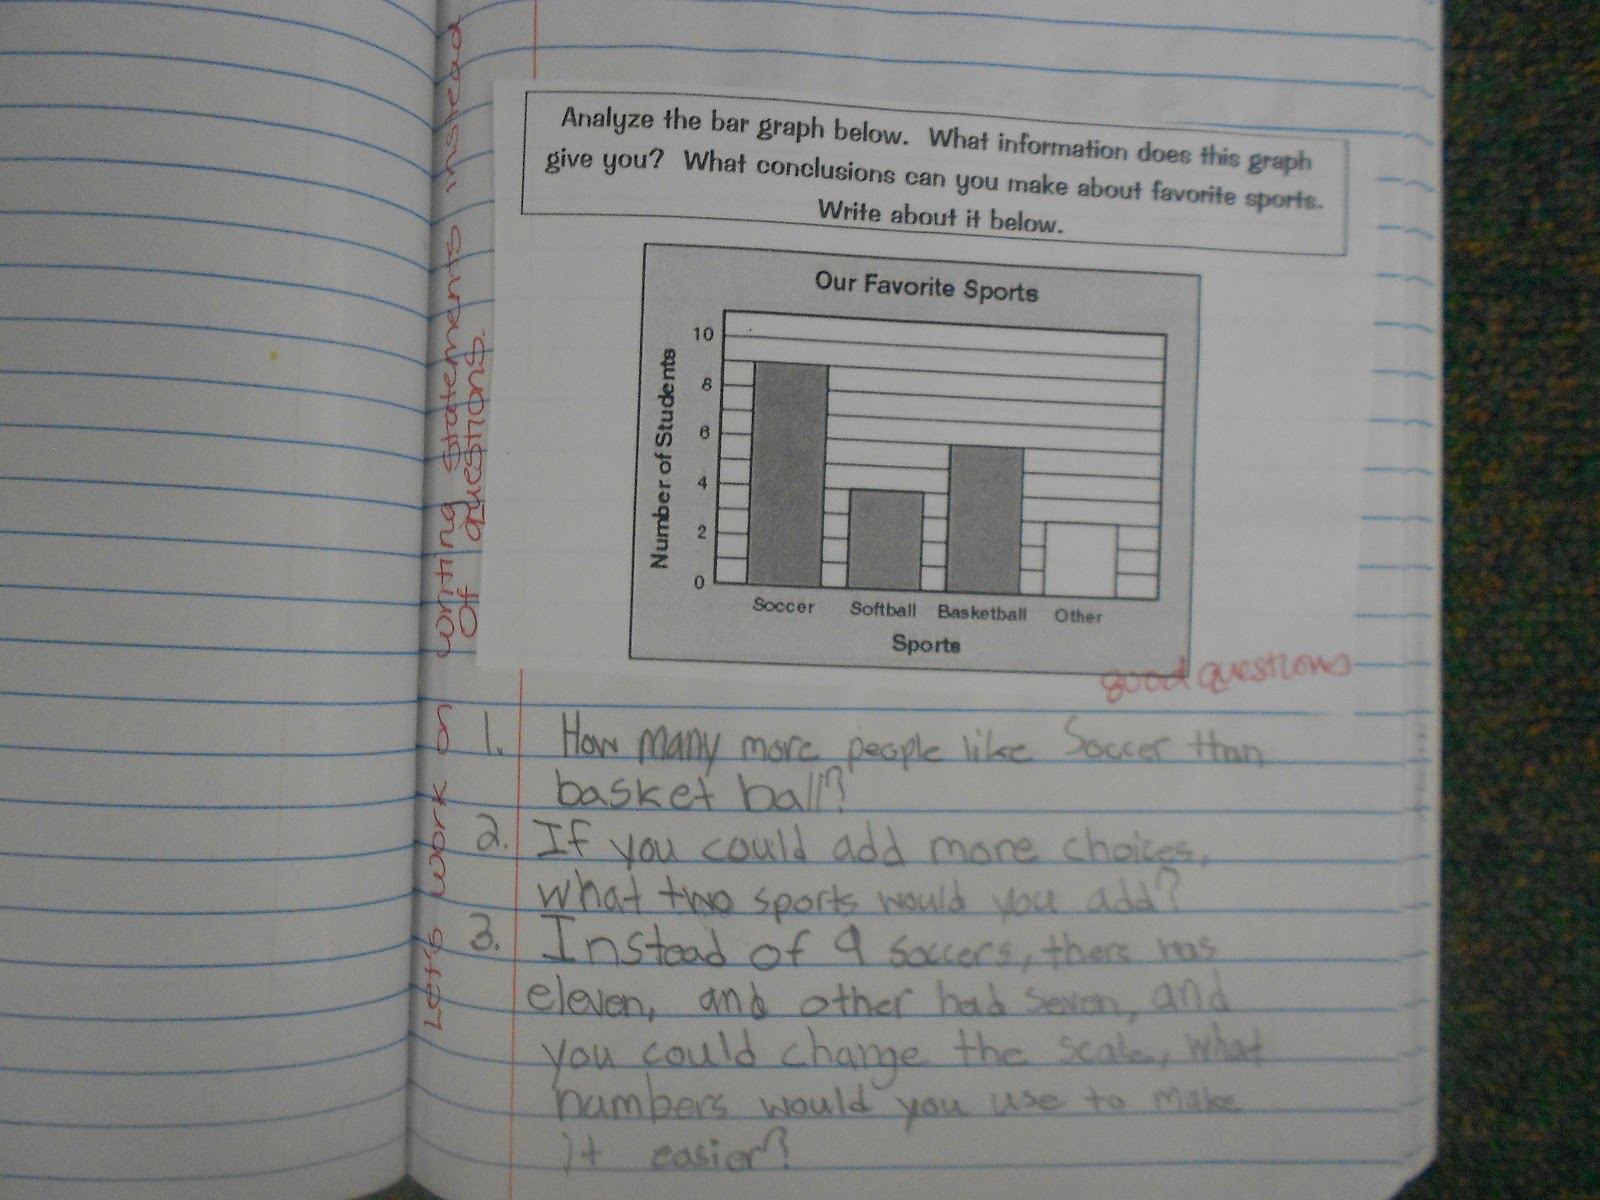 Analyze the bar graph below. What information does this graph
give you? What conclusions can you make about favorite sports.
Write about it below.
Our Favorite Sports
Number of Students
10
8
6
4
2
0
Soccer Softball Basketball Other
Sports
good questions
1. How many more people like Soccer than
basket ball?
2. If you could add more choices,
what two sports would you add?
3. Instead of 9 soccers, there was
eleven, and other had seven, and
you could change the scale, what
numbers would you use to make
it easier?
Let's work on writing statements instead
of questions.